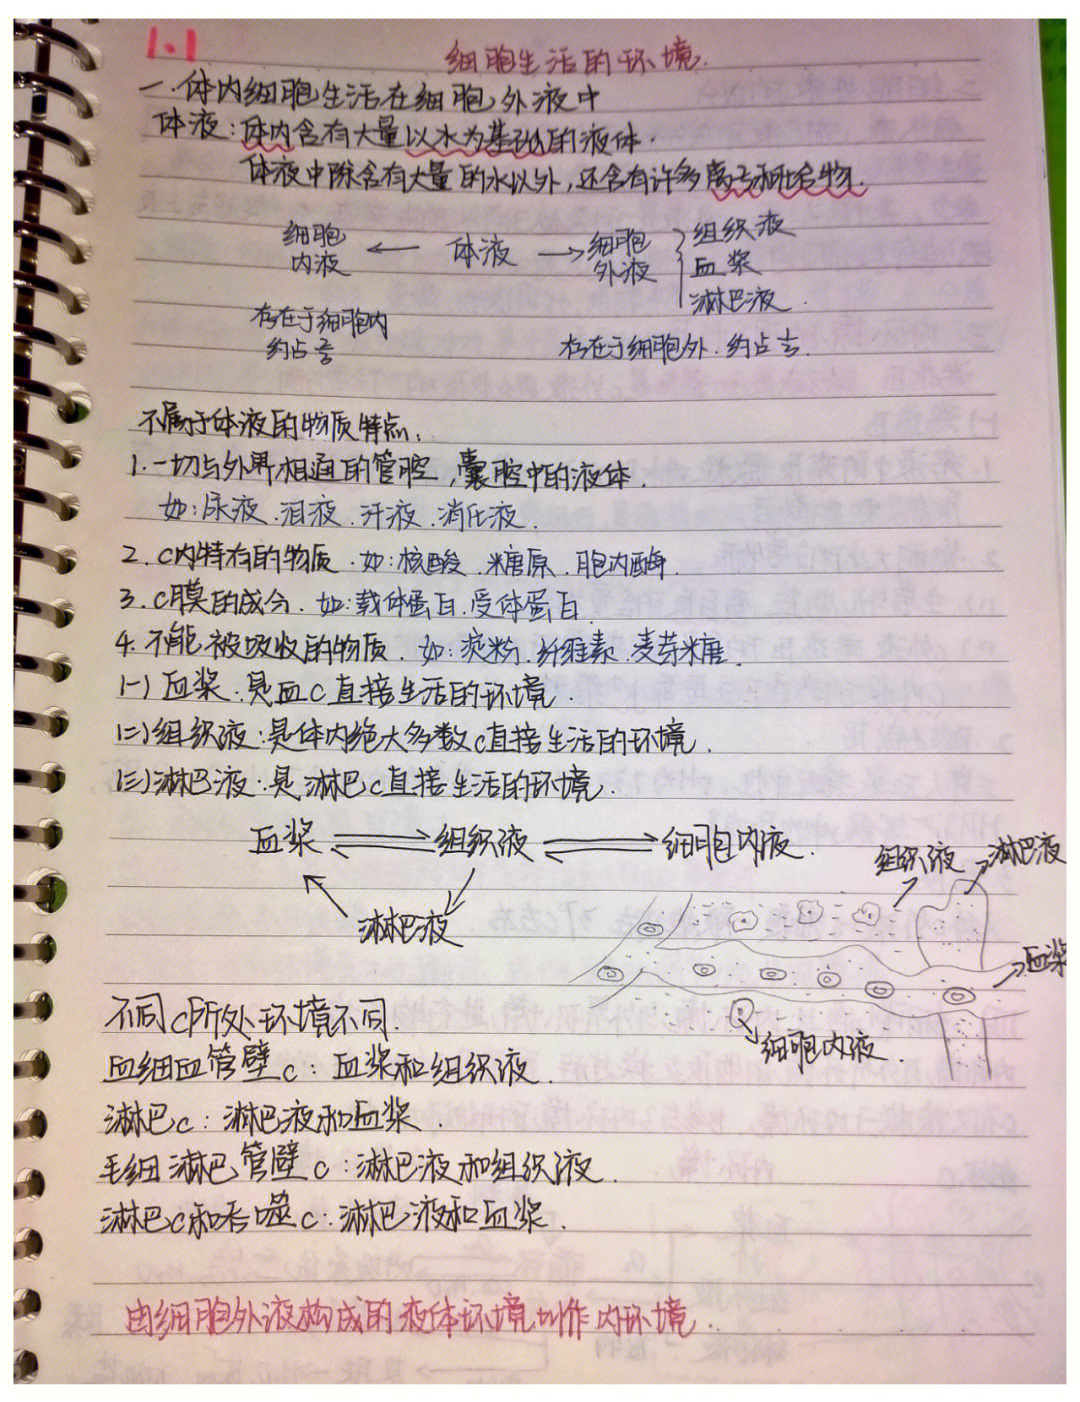 1.1
细胞生活的环境.
一.体内细胞生活在细胞外液中
体液:体内含有大量以水为基础的液体.
体液中除含有大量的水以外,还含有许多离子和化合物.
细胞内液 ← 体液 → 细胞外液
组织液
血浆
淋巴液.
存在于细胞内
约占⅔
存在于细胞外.约占⅓.
不属于体液的物质特点:
1.一切与外界相通的管腔,囊腔中的液体.
如:尿液.泪液.汗液.消化液.
2.c内特有的物质.如:核酸.糖原.胞内酶.
3.c膜的成分.如:载体蛋白.受体蛋白.
4.不能被吸收的物质.如:淀粉.纤维素.麦芽糖.
(一)血浆.是血c直接生活的环境.
(二)组织液:是体内绝大多数c直接生活的环境.
(三)淋巴液.是淋巴c直接生活的环境.
血浆 ⇌ 组织液 ⇌ 细胞内液.
淋巴液
组织液
淋巴液
血浆
细胞内液.
不同c所处环境不同.
血细血管壁c:血浆和组织液.
淋巴c:淋巴液和血浆.
毛细淋巴管壁c:淋巴液和组织液.
淋巴c和吞噬c:淋巴液和血浆.
由细胞外液构成的液体环境叫作内环境.